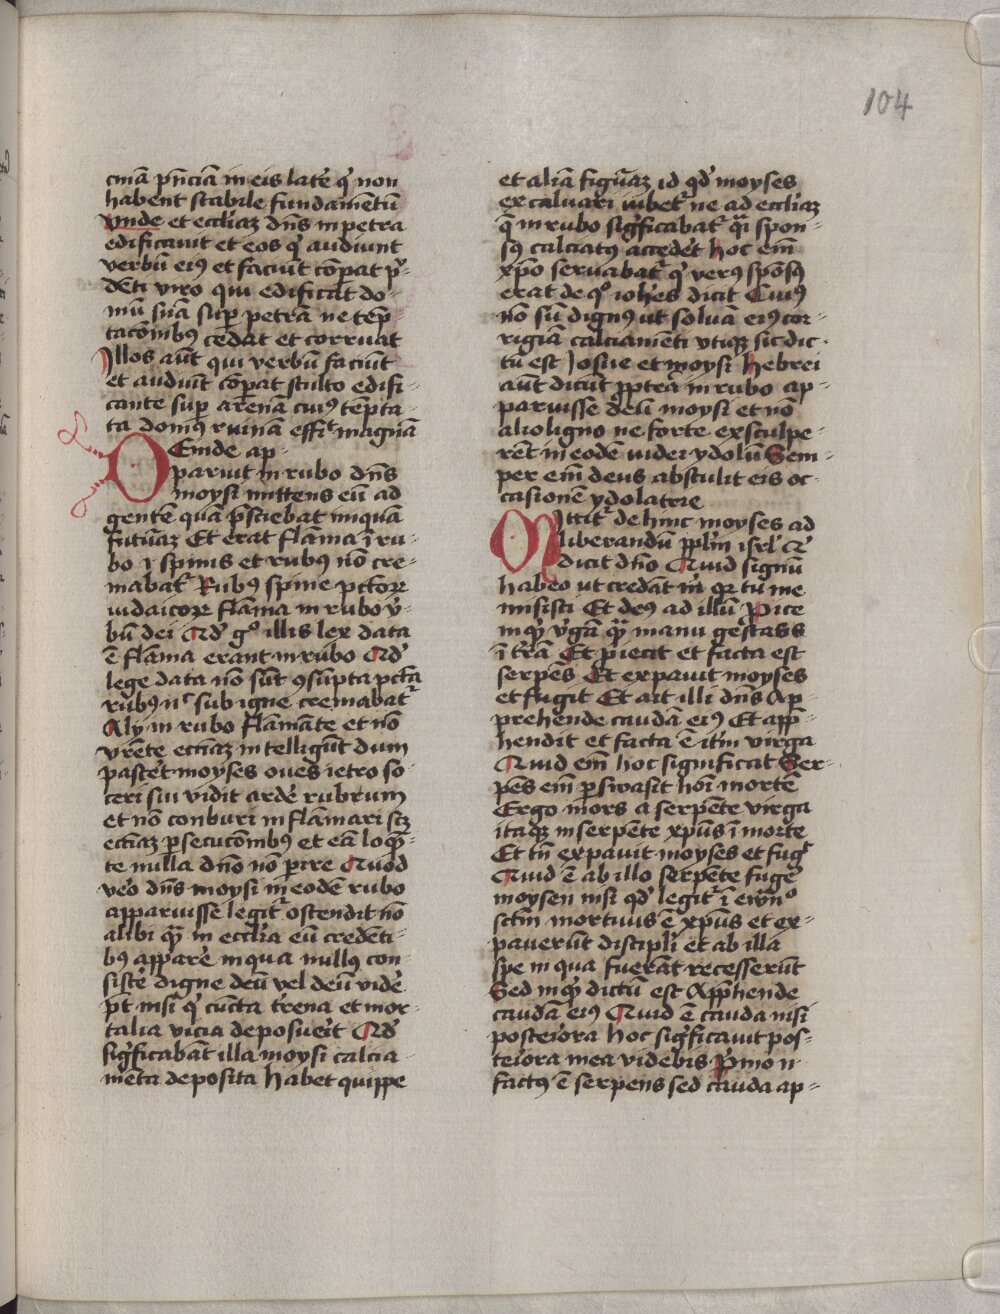 104
cinā pn̄ciā in eis late q̇ non
habent stabile fundamētū
vnde et eccliaz dn̄s in petra
edificauit et eos q̇ audiunt
verbū eiꝰ et faciūt cōpat p̄-
dēti viro qui edificat do-
mū suā sup petrā ne tēp
tacōnibus cedat et corruat
Illos aūt qui verbū faciūt
et audiūt cōpat stulto edifi-
cante sup arenā cuiꝰ tēpta-
ta domꝰ ruinā effit magnā
Deinde ap-
paruit in rubo dn̄s
moysi mittens eū ad
gentē quā p̄sciebat iniquā
futuraz Et erat flāma ī ru-
bo ī spinis et rubꝰ nō cre-
mabat Rubꝰ spine pctores
iudaicoꝝ flāma in rubo v̇-
bū dei Qd̄ gͦ illis lex data
ē flāma erant in rubo Qd̄
lege data nō sūt ꝯsūpta pctā
rubꝰ nͨ sub igne cremabat
Alij in rubo flāmāte et nō
vrēte eccīaz intelligūt dum
pastet moyses oues ietro so-
ceri sui vidit ardē rubrum
et nō conburi inflāmari scz
eccīaz psecucōnibꝰ et eā loqn̄-
te nulla dn̄o nō pire Quod
vero dn̄s moysi in eodē rubo
apparuisse legit ostendit nō
alibi qm̄ in ecclīa eū credēti-
bꝰ apparē in qua nullꝰ con-
siste digne deū vel deū vidē
pt nisi q̇ cūcta tr̄ena et mor-
talia vicia deposuerit Qd̄
sigficabāt illa moysi calcia-
mēta deposita habet quippe
et aliā figuraz id qd̄ moyses
excalciari iubet ne ad eccliaz
q̄ in rubo sigficabat qͣi spon-
sꝰ calciatꝰ accedēt hoc eīm
xp̄o seruabat q̇ verꝰ spōsꝰ
erat de qͦ ioh̄es dicit Cuiꝰ
nō sū dignꝰ ut soluā eiꝰ cor-
rigiā calciamēti vtiqz sic dic-
tū est Josue et moysi hebrei
aūt dicūt pptēa in rubo ap-
paruisse deū moysi et nō
alio ligno ne forte exsculpe-
rēt in eodē uideri ydolū Sem-
per eīm deus abstulit eis oc-
casionē ydolatrie
Mittit dehinc moyses ad
liberandū pplm̄ isrl Et
dicit dn̄o Quid signū
habeo ut credāt m̄ qr tu me
misisti Et deꝰ ad illū Pice
inqͥ v̇gā qͣ manu gestass
ī tr̄ā Et piecit et facta est
serpēs Et expauit moyses
et fugit Et ait illi dn̄s Ap-
prehende caudā eiꝰ Et app-
hendit et facta ē itm̄ virga
Quid eīm hoc significat Ser-
pēs eīm pswasit hoī mortē
Ergo mors a serpēte virga
itaqz in serpēte xp̄us ī morte
Et tn̄ expauit moyses et fug
Quid ē ab illo serpēte fugē
moysen nisi qd̄ legit ī ewnͦ
sctm̄ mortuus ē xp̄us et ex-
pauerūt discipli et ab illa
spe in qua fuerāt recesserūt
Sed inqͥ dictū est Apphende
caudā eiꝰ Quid ē cauda nisi
posteriora hoc sigficauit pos-
teriora mea videbis Pimo n
factꝰ ē serpens sed cauda ap-